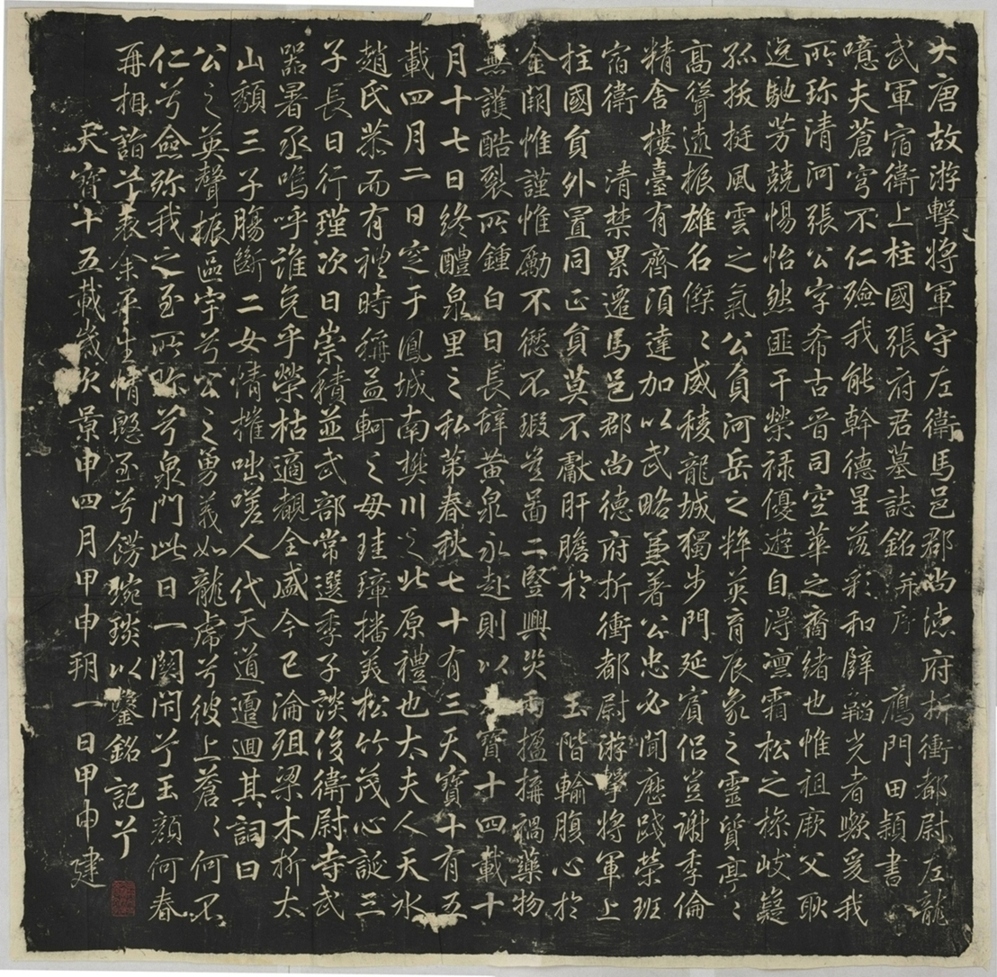 大唐故游擊將軍守左衛馬邑郡尚德府折衝都尉左龍
武軍宿衛上柱國張府君墓誌銘并序 鴈門田穎書
噫夫蒼穹不仁殮我能幹德星落彩和薜韜光者歟爰我
所珎清河張公字希古晉司空華之裔緒也惟祖厥父耿
迢馳芳兢惕怡然匪干榮禄優遊自得凜霜松之操岐嶷
孤拔挺風雲之氣公負河岳之粹英育辰象之靈質亭〻
高聳遠振雄名傑〻威稜龍城獨步門延賓侶豈謝季倫
精舍樓臺有齊須達加以武略兼著公忠必聞歷踐榮班
宿衛 清禁累遷馬邑郡尚德府折衝都尉游擊將軍上
柱國員外置同正員莫不獻肝膽於 玉階輸腹心於
金闕惟謹惟勵不愆不瑕豈啚二豎興災兩楹搆禍藥物
無護酷裂所鍾白日長辭黃泉永赴則以 寶十四載十
月十七日終醴泉里之私第春秋七十有三天寶十有五
載四月二日窆于鳳城南樊川之北原禮也太夫人天水
趙氏恭而有礼時稱孟軻之母珪璋播美松竹茂心誕三
子長曰行瑾次曰崇積並武部常選季子談俊衛尉寺武
器署丞嗚呼誰免乎榮枯適覩全盛今已淪殂梁木折太
山頹三子腸斷二女情摧咄嗟人代天道邅迴其詞曰
公之英聲振區宇兮公之勇義如龍虎兮彼上蒼〻何不
仁兮僉殄我之至所珎兮泉門此日一闕閇兮玉顏何春
再相詣兮表余平生情慇至兮鐫琬琰以鑒銘記兮
天寶十五載歲次景申四月甲申朔一日甲申建